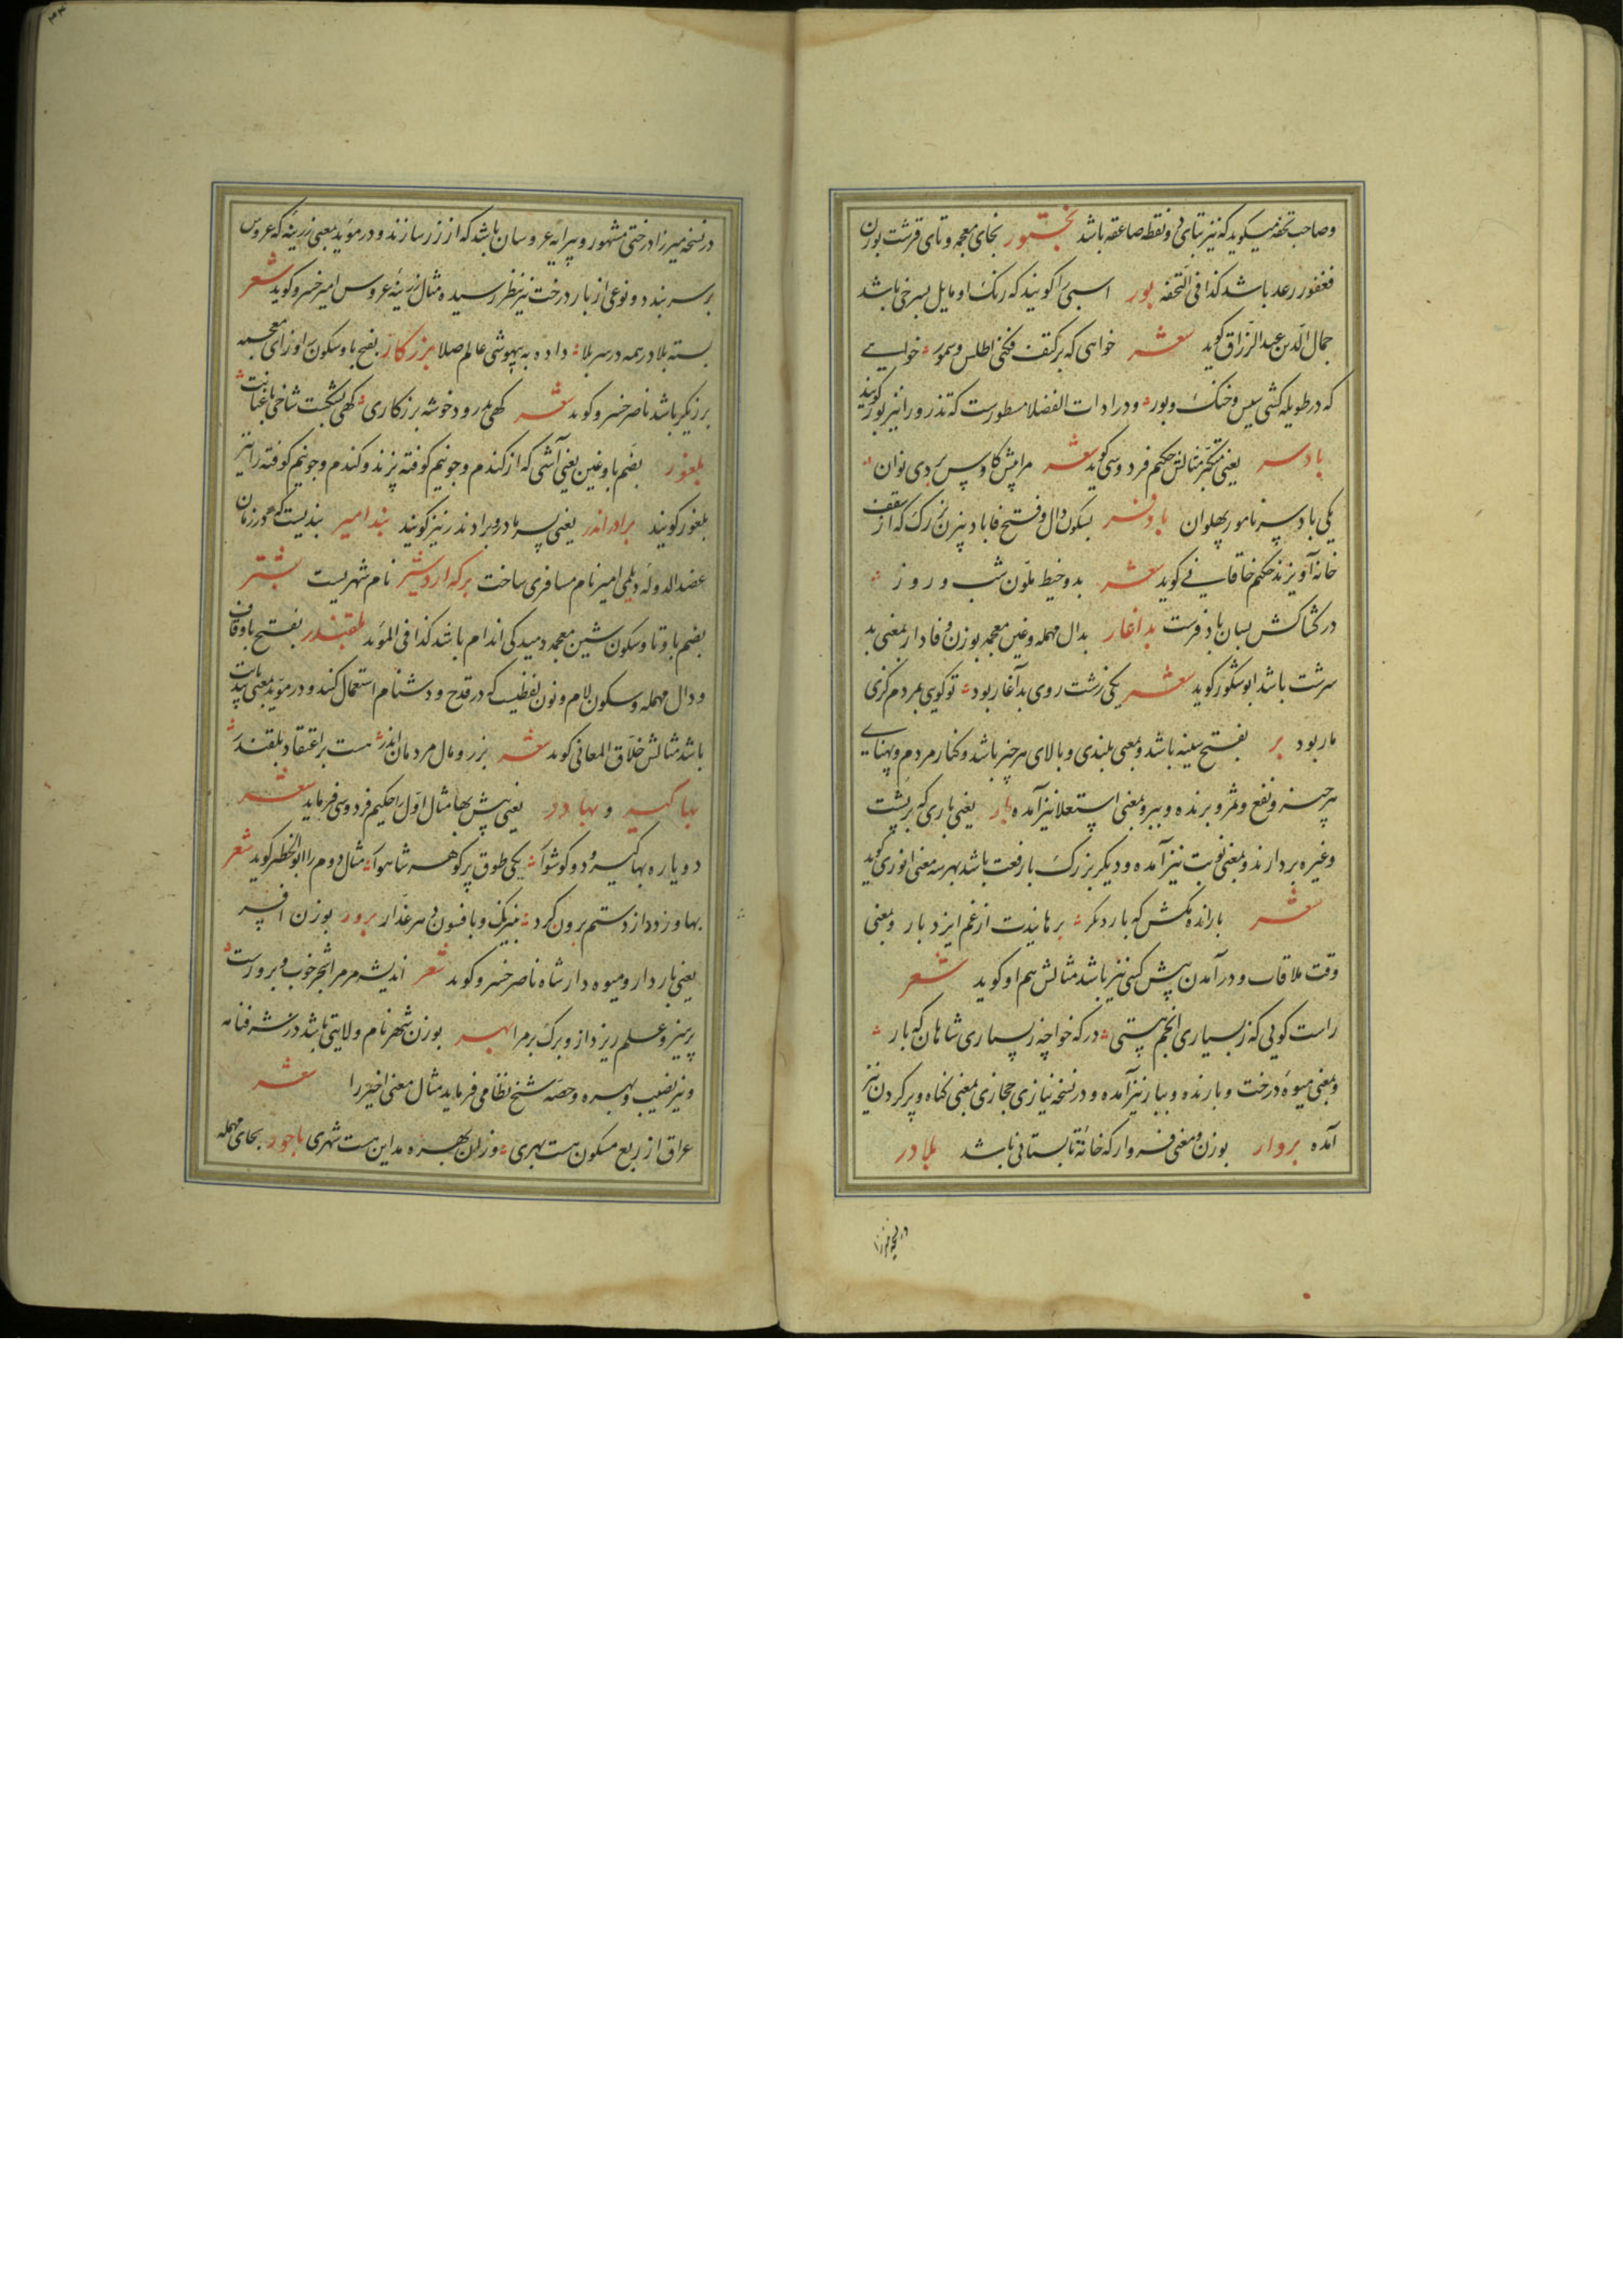 وصاحب تحفه میکوید که نیز بتای دو نقطه صاعقه باشد بختور بخای معجمه و تای قرشت بوزن
فغفور رعد باشد کذا فی التحفه بور اسبی را کویند که رنک او مایل بسرخی باشد
جمال الدین عبد الرزاق کوید شعر خواهی که برکتف فکنی اطلس و سمور خواهی
که در طویله کشی سیس و خنک و بور و در ادات الفضلا مسطورست که تذرو را نیز بور کویند
بادسر یعنی متکبر مثالش حکیم فردوسی کوید شعر مرا پیش کاوس بردی نوان
یکی بادسر نامور پهلوان بادفر بسکون دال و فتح فا بادبیزن بزرک که از سقف
خانه آویزند حکیم خاقانی کوید شعر بدو خیط ملون شب و روز
در کشاکش بسان بادفرست بداغار بدال مهمله و غین معجمه بوزن وفادار بمعنی بد
سرشت باشد ابو شکور کوید شعر یکی زشت روی بدآغار بود تو کویی بمردم کزی
مار بود بر بفتح سینه باشد و بمعنی بلندی و بالای هر چیز باشد و کنار مردم و پهنای
هر چیز و نفع و ثمر و برنده و ببر و بمعنی استعلا نیز آمده بار یعنی باری که بر پشت
وغیره بردارند و بمعنی نوبت نیز آمده و دیکر بزرک بارفعت باشد بهر سه معنی انوری کوید
شعر بار انده مکش که بار دکر برهاندت از غم ایزد بار و بمعنی
وقت ملاقات و درآمدن پیش کسی نیز باشد مثالش هم او کوید شعر
راست کویی که ز بسیاری انجم هستی درکه خواجه ز بسیاری شاهان که بار
و بمعنی میوه درخت و بارنده و ببار نیز آمده و در نسخه نیازی حجازی بمعنی کناه و پر کردن نیز
آمده بروار بوزن و معنی فروار که خانه تابستانی باشد بلادر
در نسخه میرزا
در نسخه میرزا درختی مشهور و پیرایه عروسان باشد که از زر سازند و در موید بمعنی زرینه که عروس
بر سر بندد و نوعی از بار درخت نیز بنظر رسیده مثال زرینه عروس امیر خسرو کوید شعر
بسته بلادر همه در سر بلا داده به بیهوشی عالم صلا برزکار بفتح با و سکون را و زای معجمه
برزیکر باشد ناصر خسرو کوید شعر کهی درود خوشه برزکاری کهی بشکست شاخی باغبانیت
بلغور بضم با و غین یعنی آشی که از کندم و جو نیم کوفته پزند و کندم و جو نیم کوفته را نیز
بلغور کویند برادر اندر یعنی پسر مادر و برادندر نیز کویند بند امیر بندیست که در زمان
عضد الدوله دیلمی امیر نام مسافری ساخت برکه اردشیر نام شهریست بشتر
بضم با و تا و سکون شین معجمه دمیدکی اندام باشد کذا فی الموید بلقندر بفتح با و قاف
و دال مهمله و سکون لام و نون لفظیست که در قدح و دشنام استعمال کنند و در موید بمعنی بی دیانت
باشد مثالش خلاق المعانی کوید شعر بزر و مال مردمان اندر هست بر اعتقاد بلقندر
بهاکیر و بهاور یعنی بیش بها مثال اول را حکیم فردوسی فرماید شعر
دو یاره بهاکیر و دو کوشوار یکی طوق پر کوهر شاهوار مثال دوم را ابو الخطیر کوید شعر
بهاور زود از دستم برون کرد بنیرنک و بافسون هر غدار برور بوزن افسر
یعنی باردار و میوه دار شاه ناصر خسرو کوید شعر اندیشه مر مرا شجر خوب برورست
پرهیز و علم ریزد ازو برک بر مرا بهر بوزن شهر نام ولایتی باشد در شرفنامه
و نیز نصیب و بهره و حصه شیخ نظامی فرماید مثال معنی اخیر را شعر
عراق از ربع مسکون هست بهری وزان بهره مداین هست شهری باحور بحای مهمله